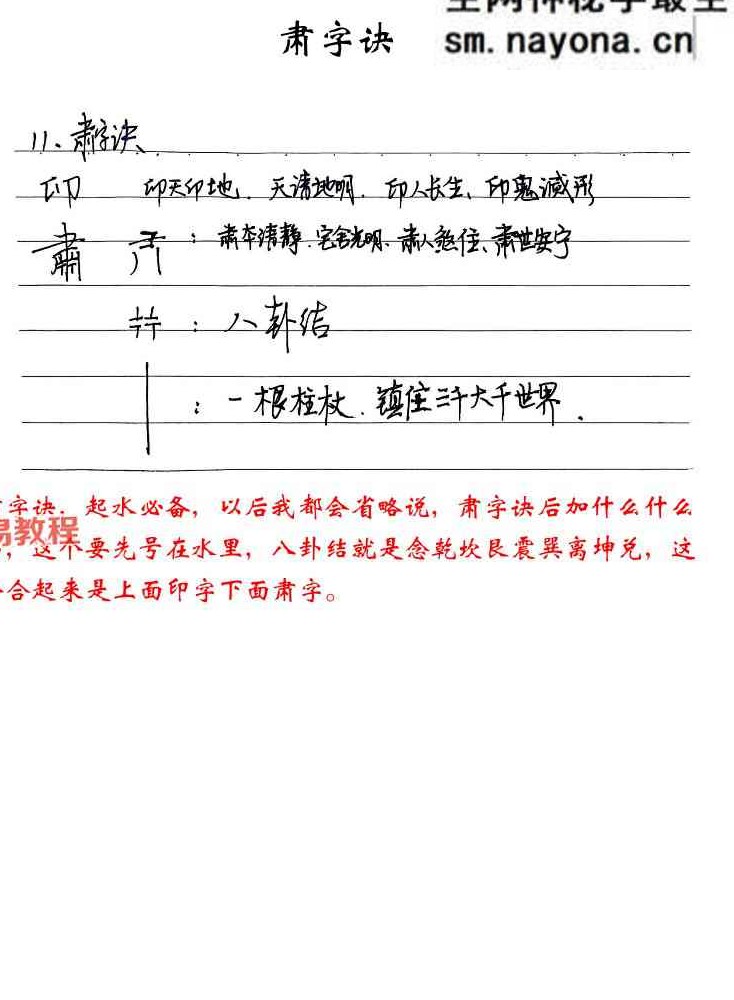 肃字诀
sm.nayona.cn
11、肃字诀、
印 印天印地、天清地明、印人长生、印鬼灭形
肅 : 肃本清静、宅舍光明、肃人煞住、肃世安宁
: 八卦结
: 一根柱杖、镇住三千大千世界.
字诀. 起水必备, 以后我都会省略说, 肃字诀后加什么什么
易教程
, 这个要先号在水里, 八卦结就是念乾坎艮震巽离坤兑, 这
合起来是上面印字下面肃字。